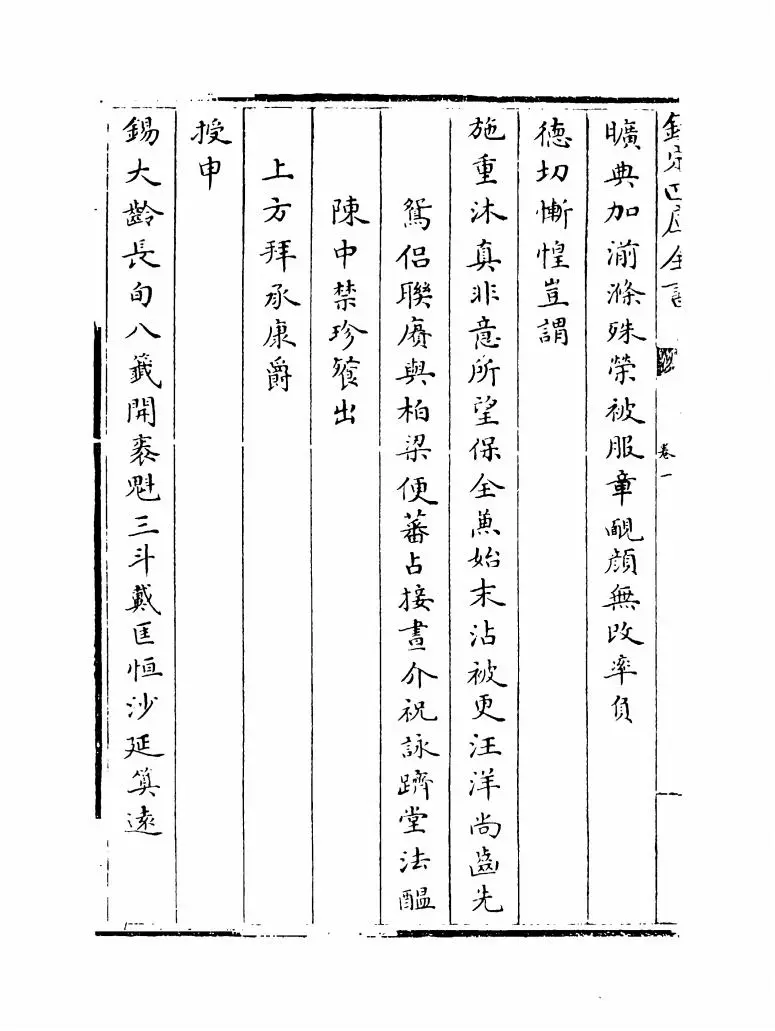 欽定四庫全書
卷一
曠典加湔滌殊榮被服章靦顔無改率負
德切慚惶豈謂
施重沐真非意所望保全兼始末沾被更汪洋尚齒先
鴛侣聯賡與柏梁便蕃占接晝介祝詠躋堂法醖
陳中禁珍飱出
上方拜承康爵
授申
錫大齡長旬八籖開袠魁三斗戴匡恒沙延筭遠